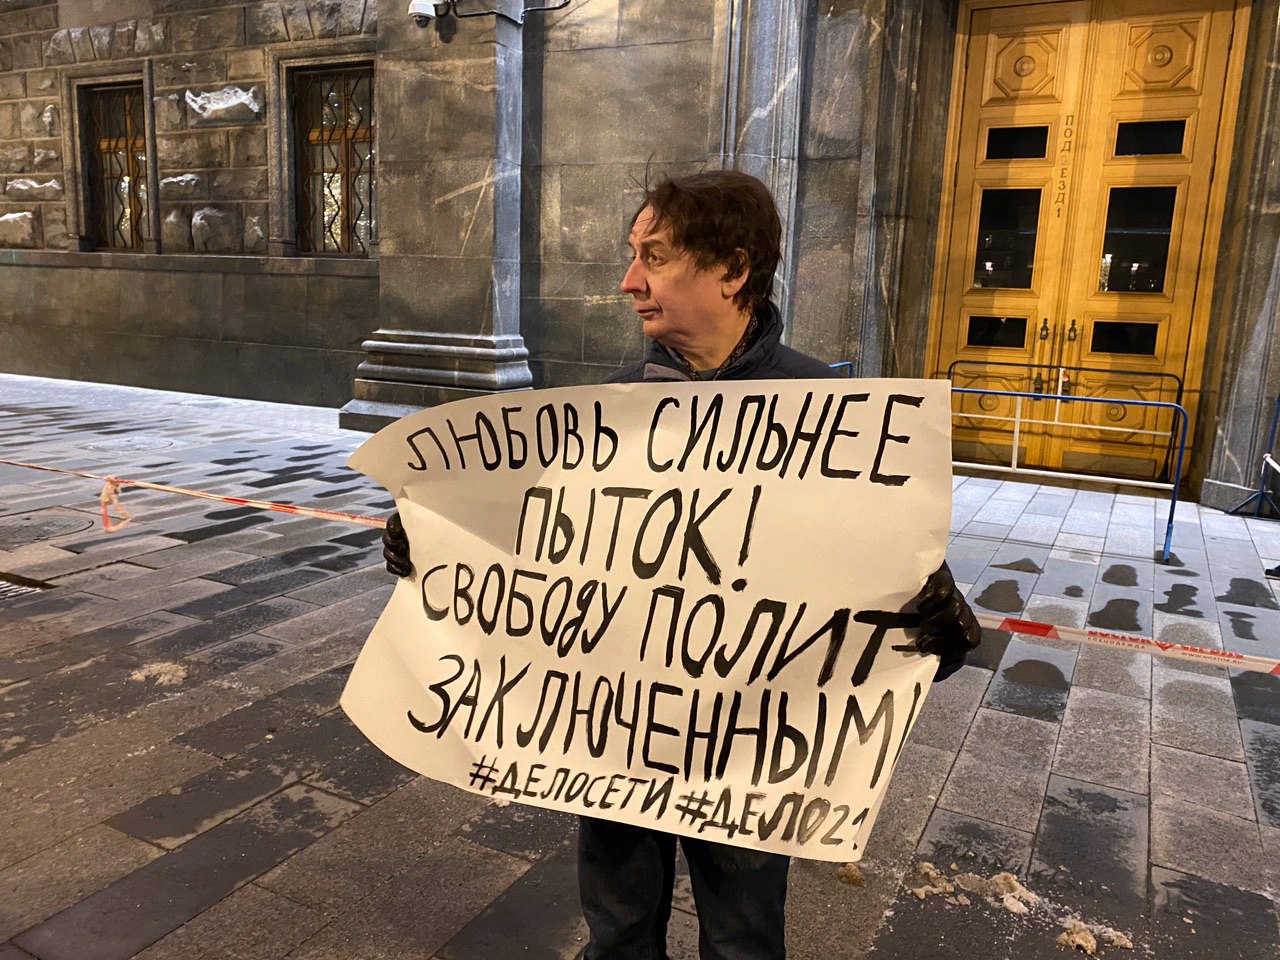 ПОДЪЕЗД 1
ЛЮБОВЬ СИЛЬНЕЕ
ПЫТОК!
СВОБОДУ ПОЛИТ-
ЗАКЛЮЧЕННЫМ!
#ДЕЛОСЕТИ #ДЕЛО21
СПЕЦОДЕЖДА